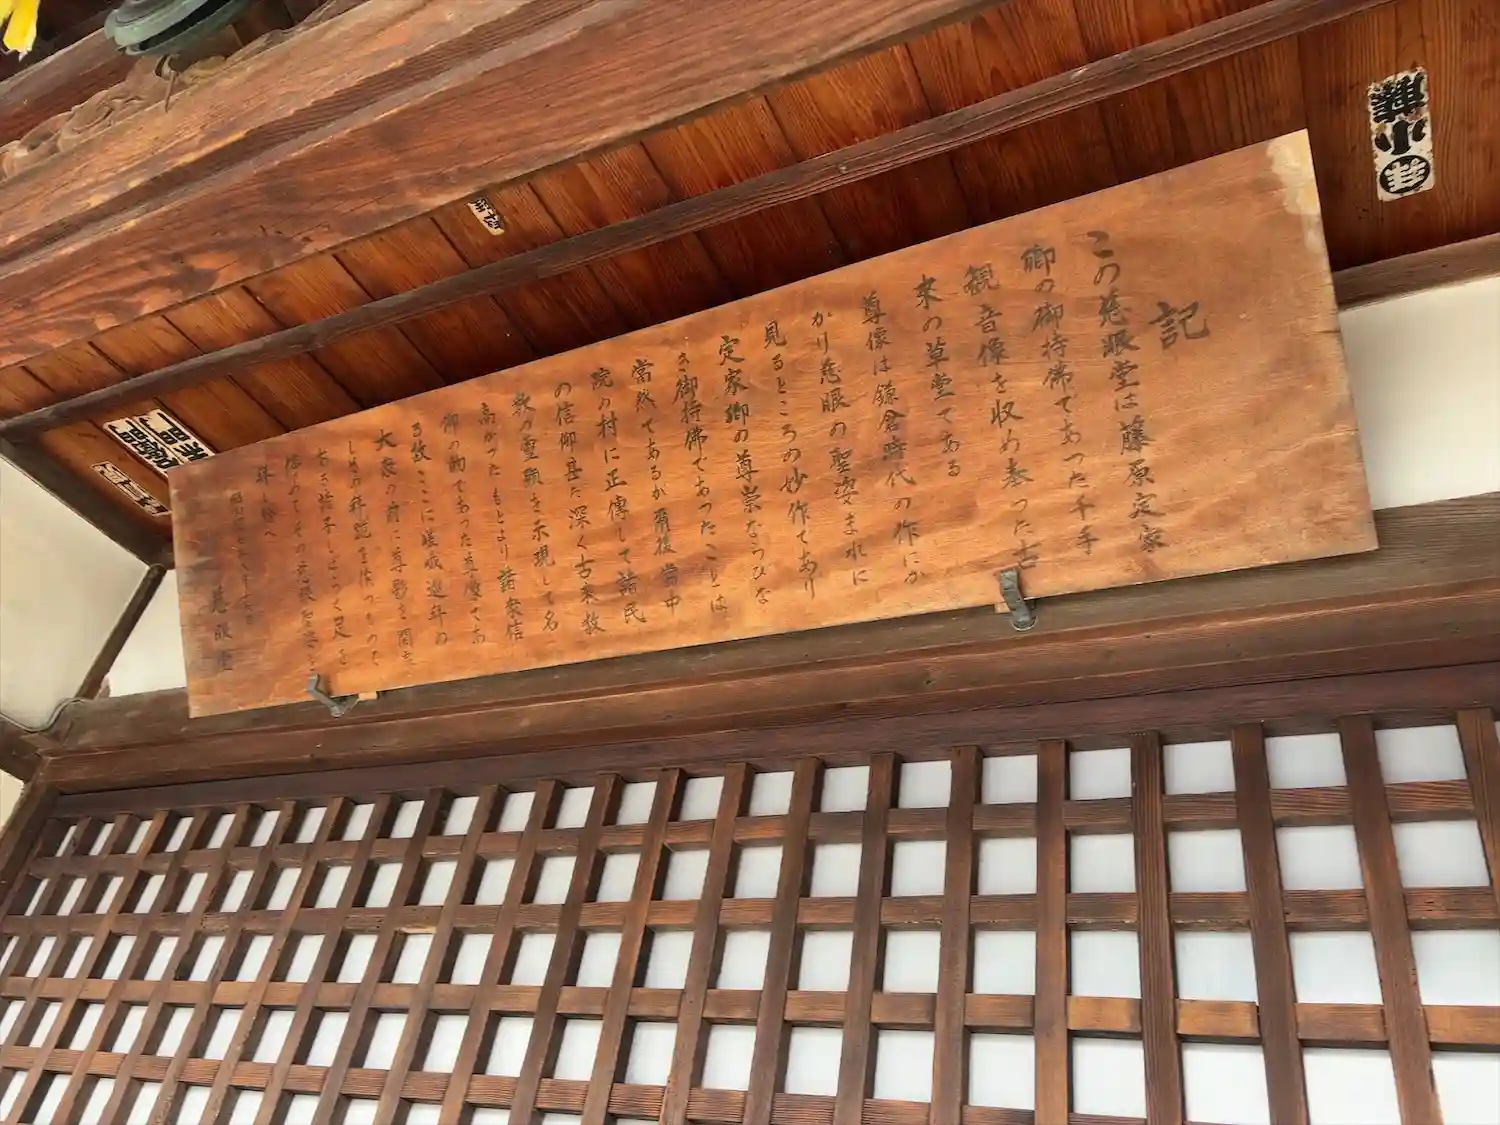 記
この慈眼堂は藤原定家
卿の御持佛であった千手
観音像を収め奉った古
来の草堂である
尊像は鎌倉時代の作にか
かり慈眼の聖姿まれに
見るところの妙作であり
定家卿の尊崇なみひな
き御持佛であったことは
當然であるが爾後當中
院の村に正傳して諸民
の信仰甚だ深く古来数
数の霊顕を示現して名
高かった もとより諸衆信
仰の的であった尊像であ
る故ここに嵯峨巡年の
大衆の前に尊影を開き
しめの
その慈眼聖姿を
拝し給へ
慈眼堂
小藤